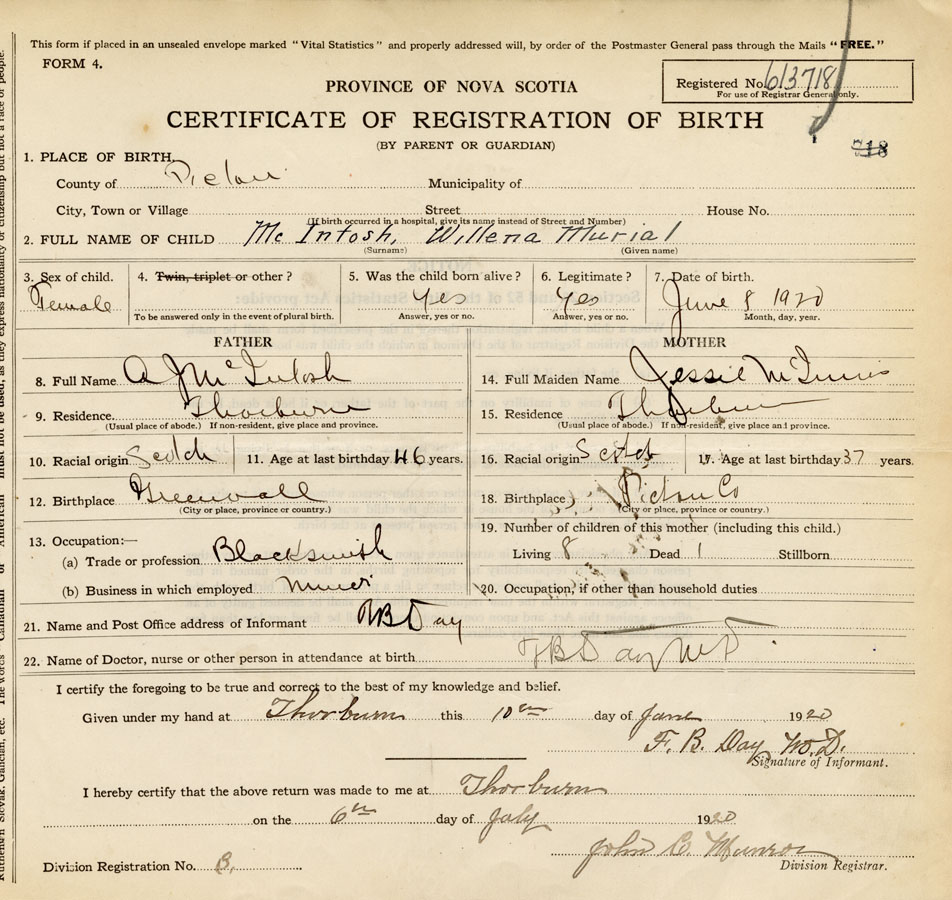 This form if placed in an unsealed envelope marked "Vital Statistics" and properly addressed will, by order of the Postmaster General pass through the Mails "FREE."
FORM 4.
Registered No. 613718
For use of Registrar General only.
PROVINCE OF NOVA SCOTIA
CERTIFICATE OF REGISTRATION OF BIRTH
(BY PARENT OR GUARDIAN)
718
1. PLACE OF BIRTH,
County of Pictou Municipality of
City, Town or Village Street House No.
(If birth occurred in a hospital, give its name instead of Street and Number)
2. FULL NAME OF CHILD McIntosh, Willena Murial
(Surname) (Given name)
3. Sex of child. 4. Twin, triplet or other? 5. Was the child born alive? 6. Legitimate? 7. Date of birth.
Female yes yes June 8 1920
To be answered only in the event of plural birth. Answer, yes or no. Answer, yes or no. Month, day, year.
FATHER MOTHER
8. Full Name A J McIntosh 14. Full Maiden Name Jessie McInnis
9. Residence. Thorburn 15. Residence Thorburn
(Usual place of abode.) If non-resident, give place and province. (Usual place of abode.) If non-resident, give place and province.
10. Racial origin Scotch 11. Age at last birthday 46 years. 16. Racial origin Scotch 17. Age at last birthday 37 years.
12. Birthplace Greenvall 18. Birthplace Pictou Co
(City or place, province or country.) (City or place, province or country.)
13. Occupation:— 19. Number of children of this mother (including this child.)
(a) Trade or profession Blacksmith Living 8 Dead 1 Stillborn
(b) Business in which employed 20. Occupation, if other than household duties
21. Name and Post Office address of Informant Day
22. Name of Doctor, nurse or other person in attendance at birth F B Day MD
I certify the foregoing to be true and correct to the best of my knowledge and belief.
Given under my hand at Thorburn this 10th day of June 1920
F. B. Day M.D.
Signature of Informant.
I hereby certify that the above return was made to me at Thorburn
on the 6th day of July 1920
John C. Munroe
Division Registration No. 3. Division Registrar.